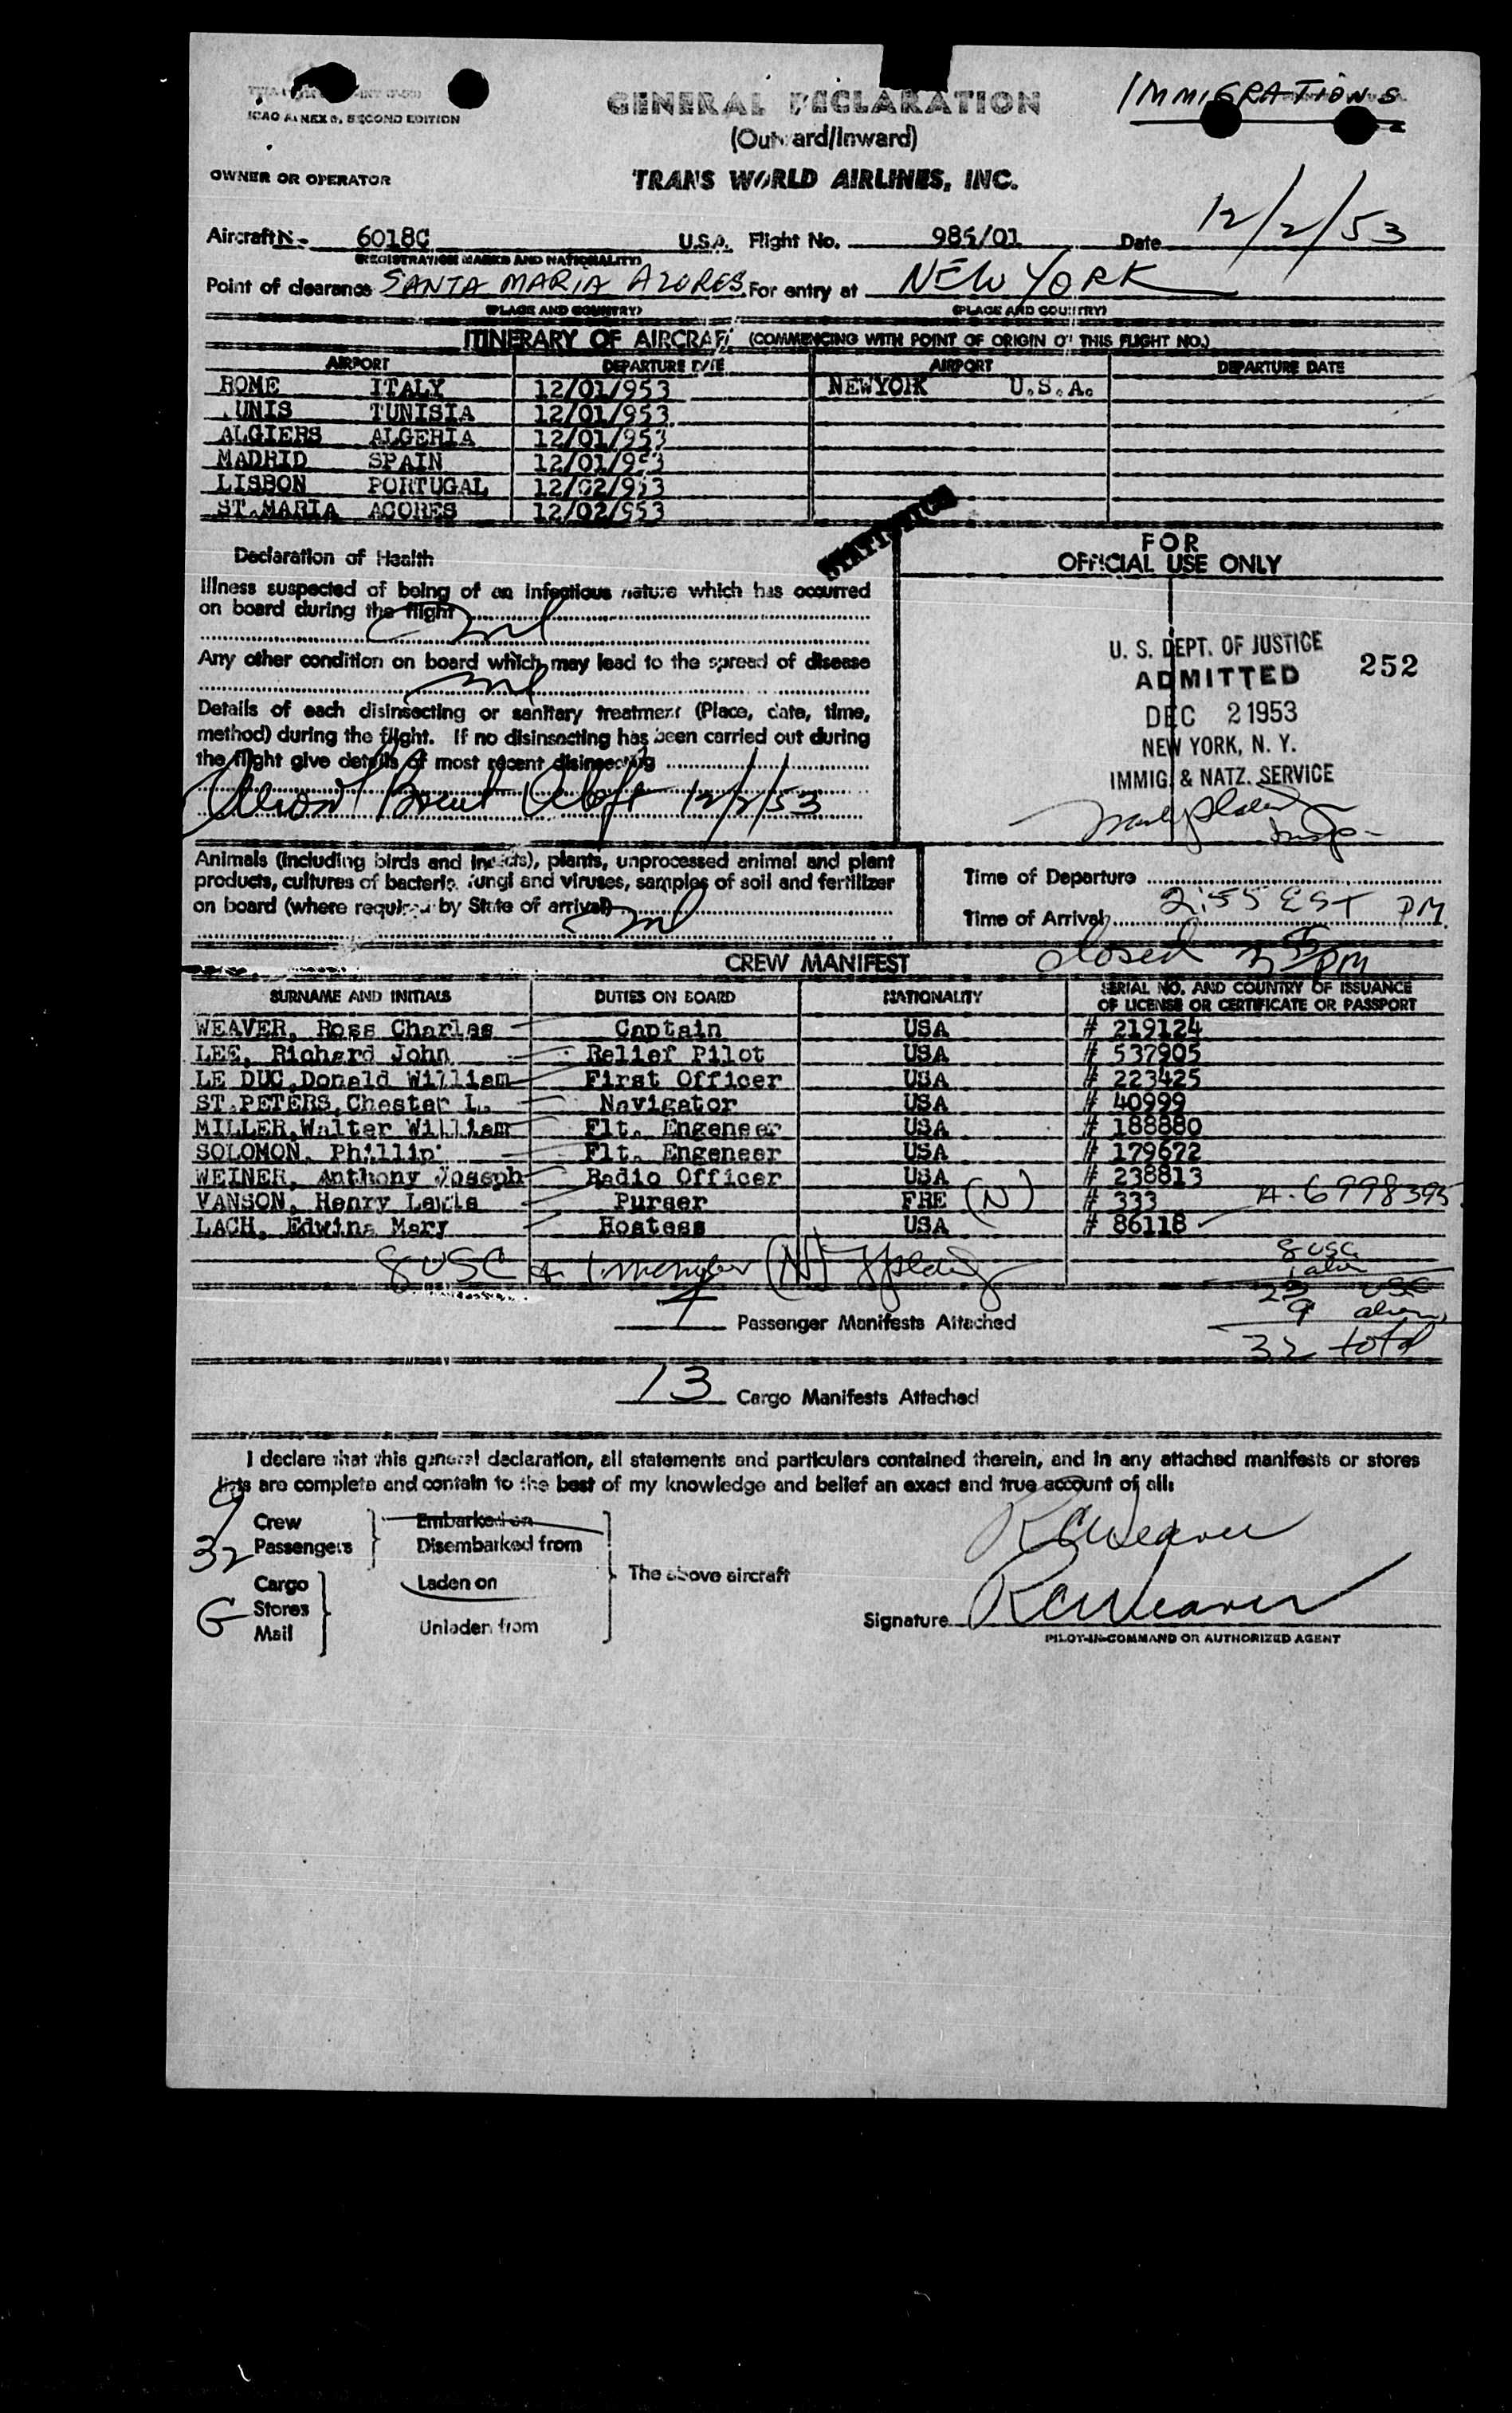 ICAO ANNEX 9, SECOND EDITION
GENERAL DECLARATION
IMMIGRATIONS
(Outward/Inward)
OWNER OR OPERATOR
TRANS WORLD AIRLINES, INC.
Aircraft N- 6018C U.S.A. Flight No. 985/01 Date 12/2/53
(REGISTRATION MARKS AND NATIONALITY)
Point of clearance SANTA MARIA AZORES For entry at NEW YORK
(PLACE AND COUNTRY) (PLACE AND COUNTRY)
ITINERARY OF AIRCRAFT (COMMENCING WITH POINT OF ORIGIN OF THIS FLIGHT NO.)
AIRPORT DEPARTURE DATE AIRPORT DEPARTURE DATE
ROME ITALY 12/01/953 NEWYORK U.S.A.
TUNIS TUNISIA 12/01/953
ALGIERS ALGERIA 12/01/953
MADRID SPAIN 12/01/953
LISBON PORTUGAL 12/02/953
ST.MARIA ACORES 12/02/953
STATISTICS
Declaration of Health
Illness suspected of being of an infectious nature which has occurred
on board during the flight
nil
Any other condition on board which may lead to the spread of disease
nil
Details of each disinsecting or sanitary treatment (Place, date, time,
method) during the flight. If no disinsecting has been carried out during
the flight give details of most recent disinsecting
12/2/53
FOR
OFFICIAL USE ONLY
U. S. DEPT. OF JUSTICE
ADMITTED 252
DEC 2 1953
NEW YORK, N. Y.
IMMIG. & NATZ. SERVICE
Insp-
Animals (including birds and insects), plants, unprocessed animal and plant
products, cultures of bacteria, fungi and viruses, samples of soil and fertilizer
on board (where required by State of arrival)
nil
Time of Departure
Time of Arrival 2:55 EST PM
closed 3 55 PM
CREW MANIFEST
SURNAME AND INITIALS DUTIES ON BOARD NATIONALITY SERIAL NO. AND COUNTRY OF ISSUANCE
OF LICENSE OR CERTIFICATE OR PASSPORT
WEAVER, Ross Charles Captain USA # 219124
LEE, Richard John Relief Pilot USA # 537905
LE DUC,Donald William First Officer USA # 223425
ST.PETERS,Chester L. Navigator USA # 40999
MILLER,Walter William Flt. Engeneer USA # 188880
SOLOMON, Phillip Flt. Engeneer USA # 179672
WEINER, Anthony Joseph Radio Officer USA # 238813
VANSON, Henry Lewis Purser FRE (N) # 333 A-6998395
LACH, Edwina Mary Hostess USA # 86118
8 USC & 1 (N)
8 USC
1 alien
23 USC
9 aliens
32 total
1 Passenger Manifests Attached
13 Cargo Manifests Attached
I declare that this general declaration, all statements and particulars contained therein, and in any attached manifests or stores
lists are complete and contain to the best of my knowledge and belief an exact and true account of all:
9 Crew Embarked on
32 Passengers Disembarked from
The above aircraft
Cargo Laden on
G Stores
Mail Unladen from
RCWeaver
Signature RCWeaver
PILOT-IN-COMMAND OR AUTHORIZED AGENT